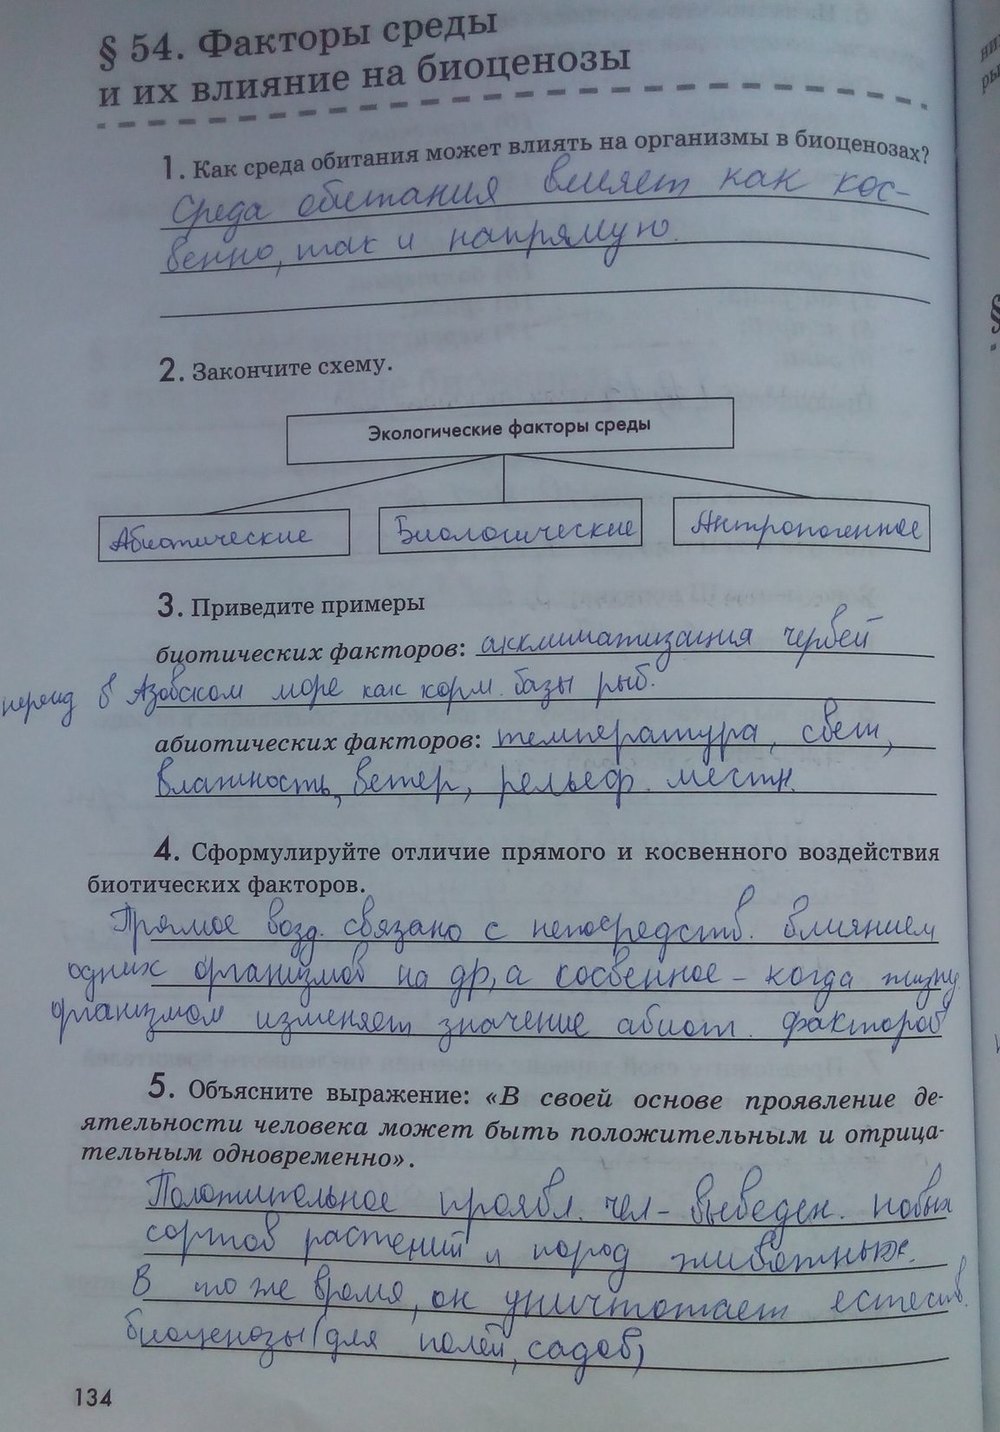 § 54. Факторы среды
и их влияние на биоценозы
1. Как среда обитания может влиять на организмы в биоценозах?
Среда обитания влияет как кос-
венно, так и напрямую.
2. Закончите схему.
Экологические факторы среды
Абиотические Биологические Антропогенное
3. Приведите примеры
биотических факторов: акклиматизация червей
нереид в Азовском море как корм. базы рыб.
абиотических факторов: температура, свет,
влажность, ветер, рельеф. местн.
4. Сформулируйте отличие прямого и косвенного воздействия
биотических факторов.
Прямое возд. связано с непосредств. влиянием
одних организмов на др, а косвенное – когда
организмом изменяет значение абиот. факторов
5. Объясните выражение: «В своей основе проявление де-
ятельности человека может быть положительным и отрица-
тельным одновременно».
Положительное проявл. чел – выведен. новых
сортов растений и пород животных.
В то же время, он уничтожает естеств.
биоценозы (для полей, садов)
134
§